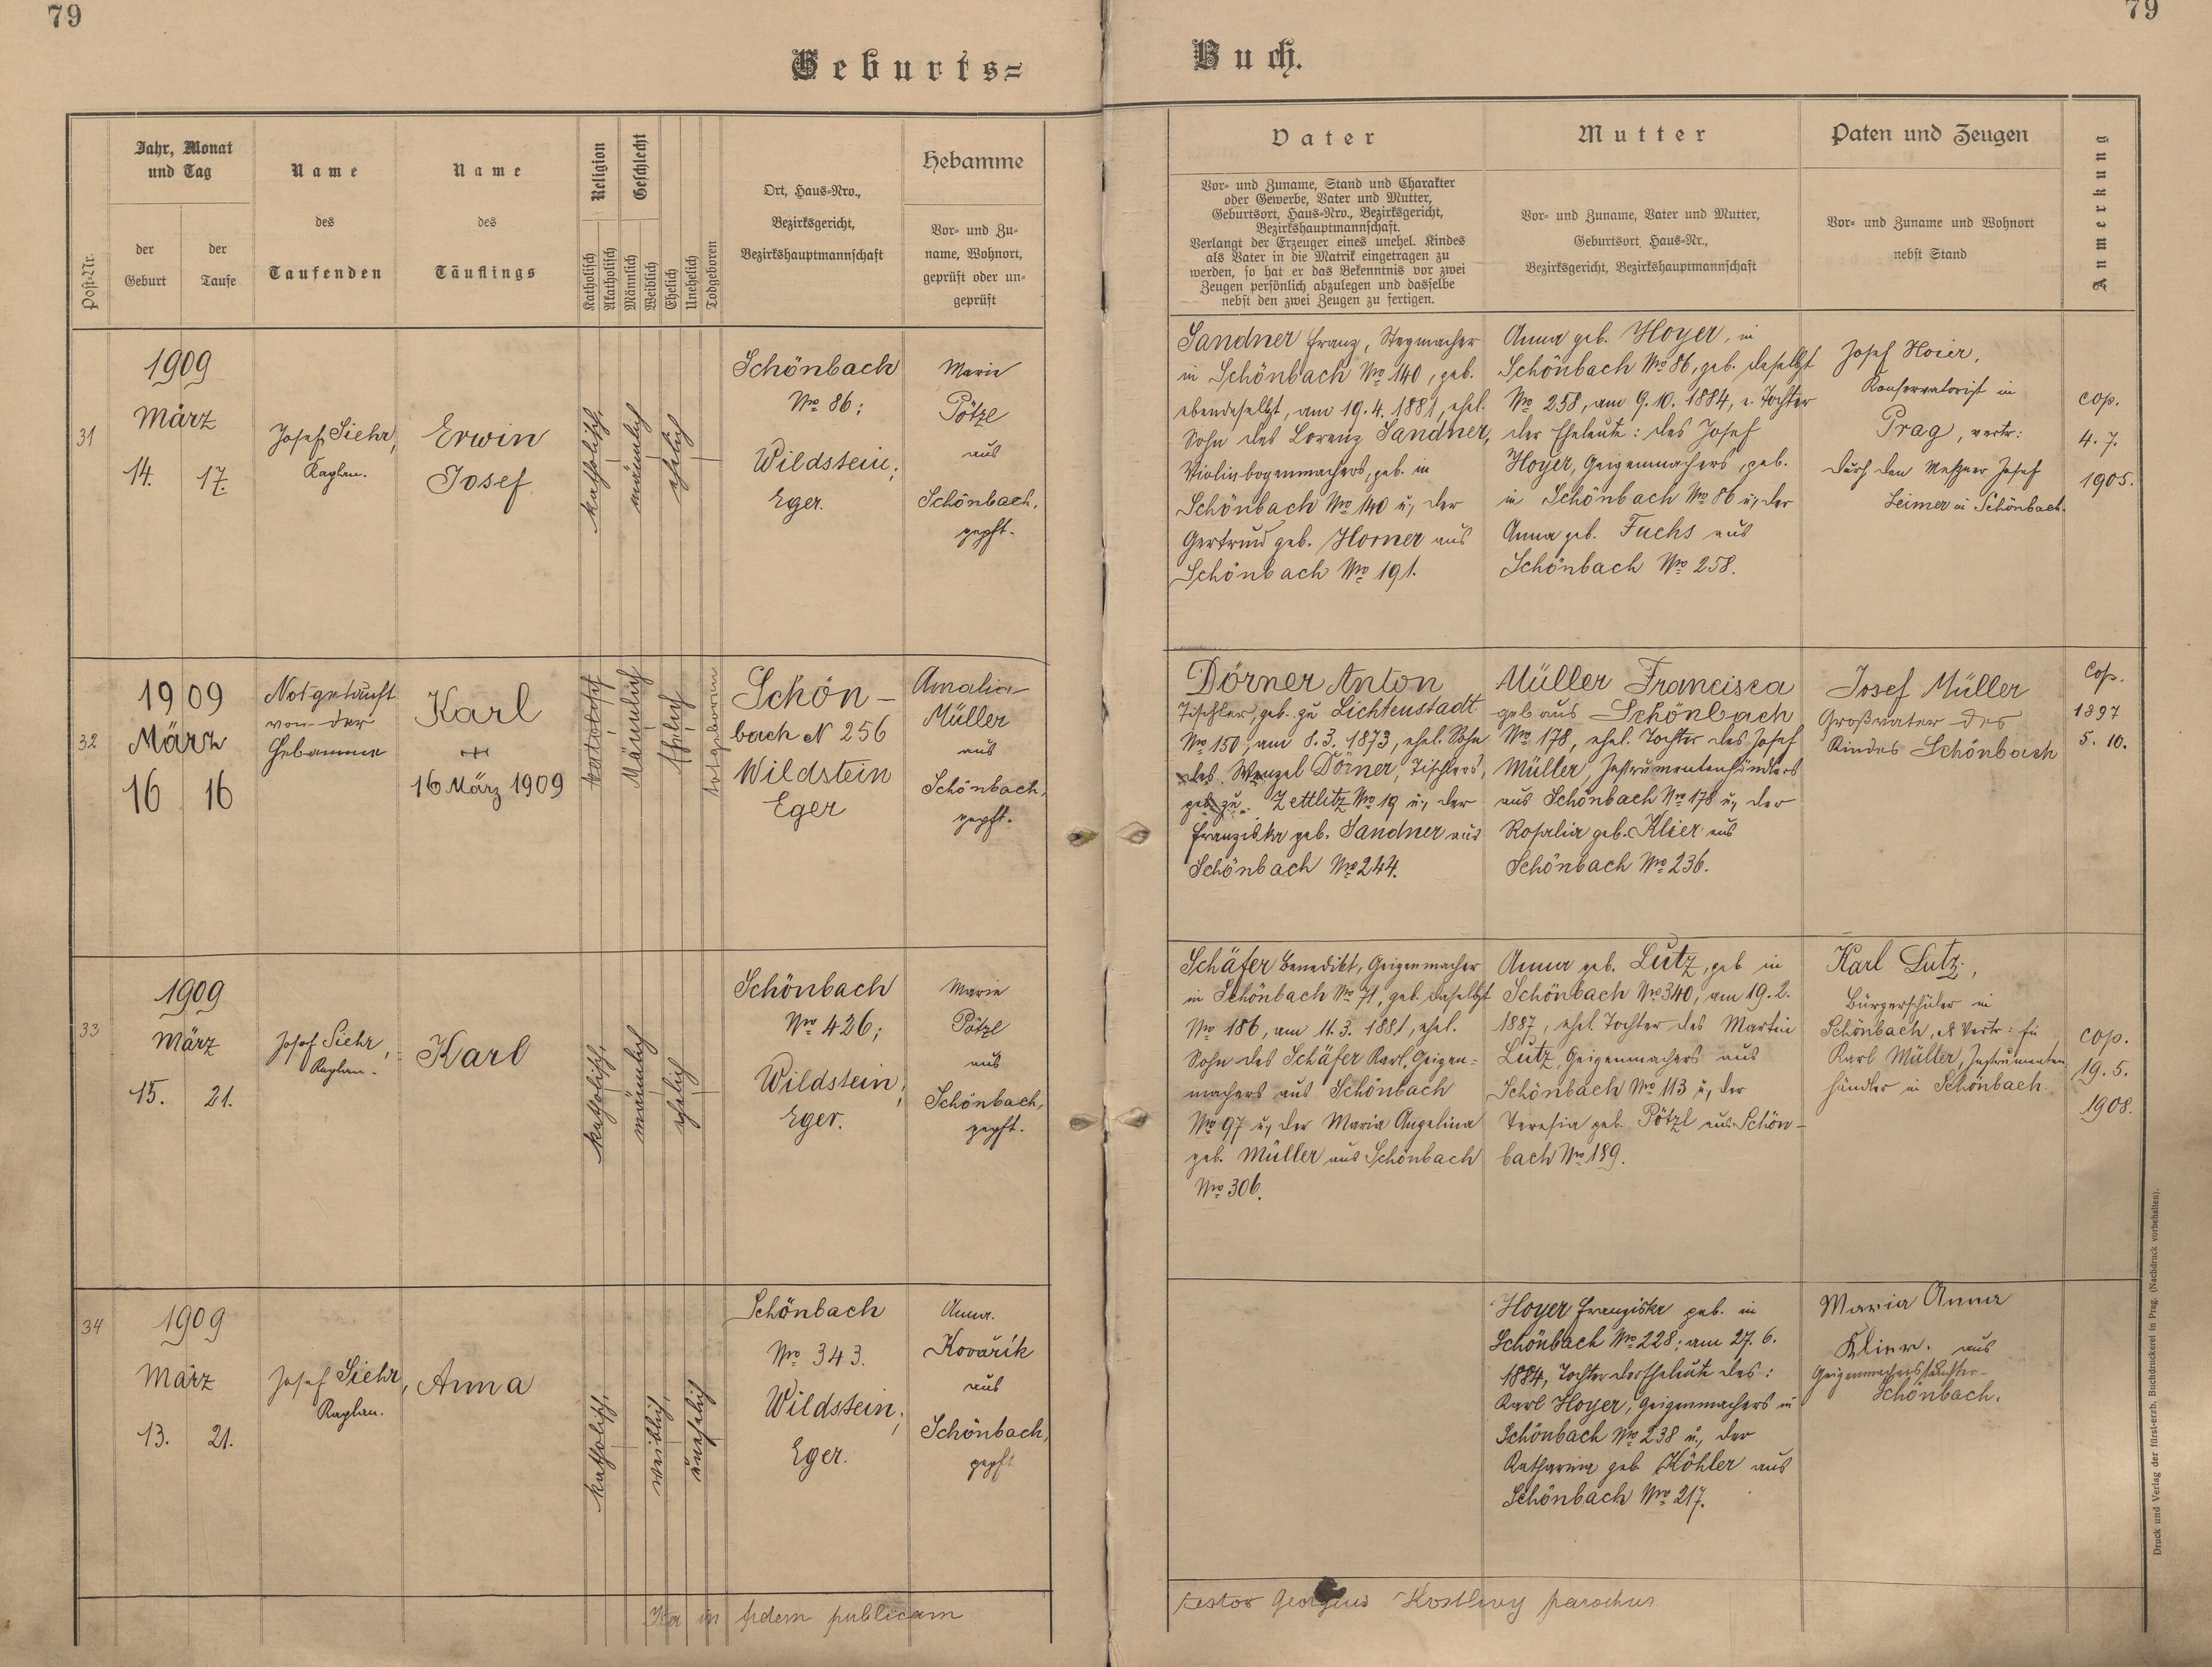 79
79
Geburts=
Buch.
Post-Nr.
Jahr, Monat
und Tag
der
Geburt
der
Taufe
Name
des
Taufenden
Name
des
Täuflings
Religion
Katholisch
Akatholisch
Geschlecht
Männlich
Weiblich
Ehelich
Unehelich
Todgeboren
Ort, Haus-Nro.,
Bezirksgericht,
Bezirkshauptmannschaft
Hebamme
Vor- und Zu-
name, Wohnort,
geprüft oder un-
geprüft
Vater
Vor- und Zuname, Stand und Charakter
oder Gewerbe, Vater und Mutter,
Geburtsort, Haus-Nro., Bezirksgericht,
Bezirkshauptmannschaft.
Verlangt der Erzeuger eines unehel. Kindes
als Vater in die Matrik eingetragen zu
werden, so hat er das Bekenntnis vor zwei
Zeugen persönlich abzulegen und dasselbe
nebst den zwei Zeugen zu fertigen.
Mutter
Vor- und Zuname, Vater und Mutter,
Geburtsort, Haus-Nr.,
Bezirksgericht, Bezirkshauptmannschaft
Paten und Zeugen
Vor- und Zuname und Wohnort
nebst Stand
Anmerkung
31
1909
März
14. 17.
Josef Siehr,
Kaplan.
Erwin
Josef
katholisch,
männlich
ehelich
Schönbach
Nro 86;
Wildstein;
Eger.
Marie
Pötzl
aus
Schönbach,
gepft.
Sandner Franz, Stegmacher
in Schönbach Nro 140, geb.
ebendaselbst, am 19. 4. 1881, ehel.
Sohn des Lorenz Sandner,
Violinbogenmachers, geb. in
Schönbach Nro 140 u, der
Gertrud geb. Horner aus
Schönbach Nro 191.
Anna geb. Hoyer, in
Schönbach No 86, geb. daselbst
No 258, am 9. 10. 1884, e. Tochter
der Eheleute: des Josef
Hoyer, Geigenmachers, geb.
in Schönbach No 86 u, der
Anna geb. Fuchs aus
Schönbach Nro 258.
Josef Hoier,
Konservatorist in
Prag, vertr:
durch den Meßner Josef
Leimer in Schönbach.
cop.
4. 7.
1905.
32
1909
März
16 16
Notgetauft
von der
Hebamme
Karl
+
16 März 1909
katholisch
Männlich
Ehelich
totgeboren
Schön-
bach N 256
Wildstein
Eger
Amalia
Müller
aus
Schönbach,
gepft.
Dörner Anton
Tischler, geb. zu Lichtenstadt
No 150, am 8. 3. 1873, ehel. Sohn
des Wenzel Dörner, Tischlers,
geb. zu Zettlitz No 19 u, der
Franziska geb. Sandner aus
Schönbach No 244.
Müller Francisca
geb aus Schönbach
No 178, ehel. Tochter des Josef
Müller, Instrumentenhändlers
aus Schönbach No 178 u, der
Rosalia geb. Klier aus
Schönbach No 236.
Josef Müller
Großvater des
Kindes Schönbach
Cop.
1897
5. 10.
33
1909
März
15. 21.
Josef Siehr,
Kaplan.
Karl
katholisch,
männlich
ehelich
Schönbach
Nro 426;
Wildstein;
Eger.
Marie
Pötzl
aus
Schönbach,
gepft.
Schäfer Benedikt, Geigenmacher
in Schönbach No 71, geb. daselbst
No 186, am 11. 3. 1881, ehel.
Sohn des Schäfer Karl, Geigen-
machers aus Schönbach
No 97 u, der Maria Angelina
geb. Müller aus Schönbach
No 306.
Anna geb. Lutz, geb in
Schönbach No 340, am 19. 2.
1887, ehel. Tochter des Martin
Lutz, Geigenmachers aus
Schönbach No 113 u, der
Teresia geb. Pötzl aus Schön-
bach No 189.
Karl Lutz,
Bürgerschüler in
Schönbach, Vertr: für
Karl Müller, Instrumenten
händler in Schönbach.
cop.
19. 5.
1908.
34
1909
März
13. 21.
Josef Siehr,
Kaplan.
Anna
katholisch,
weiblich,
unehelich
Schönbach
Nro 343.
Wildstein;
Eger.
Anna
Kovařik
aus
Schönbach,
gepft
Hoyer Franziska geb. in
Schönbach No 228; am 27. 6.
1884, Tochter der Eheleute des:
Karl Hoyer, Geigenmachers in
Schönbach No 238 u, der
Katharina geb. Köhler aus
Schönbach No 217.
Maria Anna
Klier. aus
Geigenmacherstochter
Schönbach.
Ita in fidem publicam
testor Georgius Kostlivy parochus
Druck und Verlag der fürst-erzb. Buchdruckerei in Prag. (Nachdruck vorbehalten).